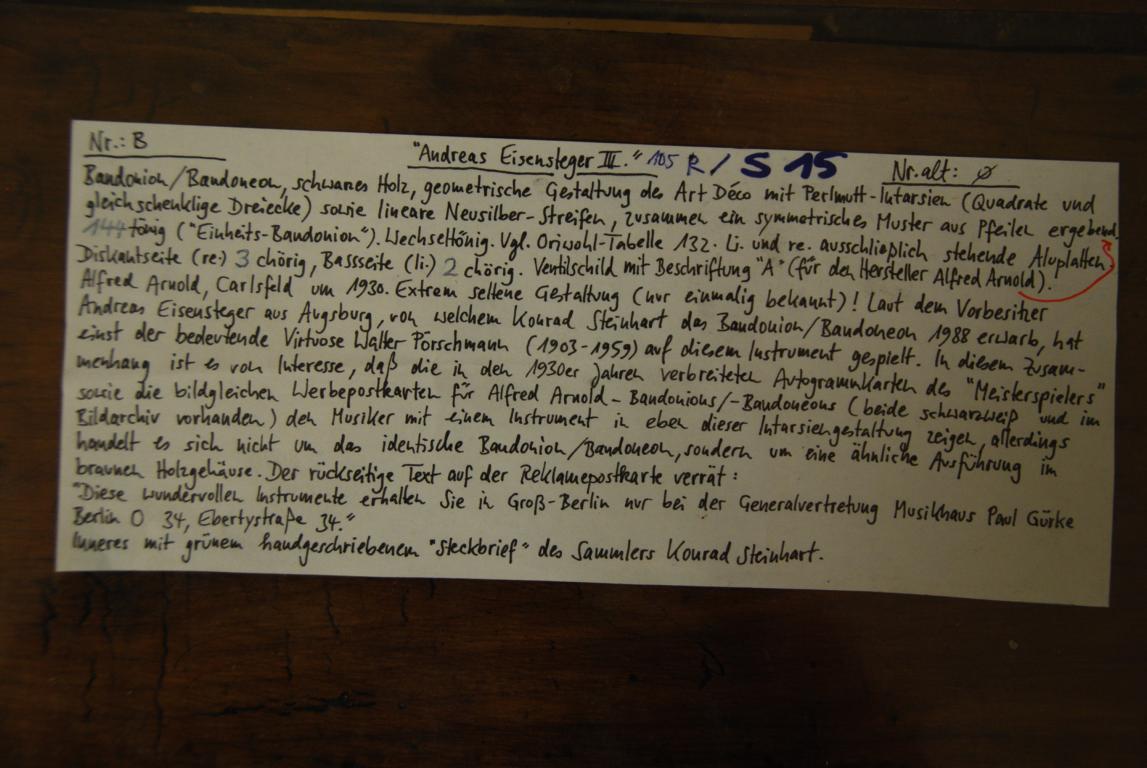 Nr.: B "Andreas Eisensteger III." 105 R / S 15 Nr. alt: ∅
Bandonion/Bandoneon, schwarzes Holz, geometrische Gestaltung des Art Déco mit Perlmutt-Intarsien (Quadrate und
gleichschenklige Dreiecke) sowie lineare Neusilber-Streifen, zusammen ein symmetrisches Muster aus Pfeilen ergebend.
144tönig ("Einheits-Bandonion"). Wechseltönig. Vgl. Oriwohl-Tabelle 132. Li. und re. ausschließlich stehende Aluplatten
Diskantseite (re.) 3 chörig, Bassseite (li.) 2 chörig. Ventilschild mit Beschriftung "A" (für den Hersteller Alfred Arnold).
Alfred Arnold, Carlsfeld um 1930. Extrem seltene Gestaltung (nur einmalig bekannt)! Laut dem Vorbesitzer
Andreas Eisensteger aus Augsburg, von welchem Konrad Steinhart das Bandonion/Bandoneon 1988 erwarb, hat
einst der bedeutende Virtuose Walter Pörschmann (1903-1959) auf diesem Instrument gespielt. In diesem Zusam-
menhang ist es von Interesse, daß die in den 1930er Jahren verbreiteten Autogrammkarten des "Meisterspielers"
sowie die bildgleichen Werbepostkarten für Alfred Arnold-Bandonions/-Bandoneons (beide schwarzweiß und im
Bildarchiv vorhanden) den Musiker mit einem Instrument in eben dieser Intarsiengestaltung zeigen, allerdings
handelt es sich nicht um das identische Bandonion/Bandoneon, sondern um eine ähnliche Ausführung im
braunen Holzgehäuse. Der rückseitige Text auf der Reklamepostkarte verrät:
"Diese wundervollen Instrumente erhalten Sie in Groß-Berlin nur bei der Generalvertretung Musikhaus Paul Gürke
Berlin O 34, Ebertystraße 34."
Inneres mit grünem handgeschriebenem "Steckbrief" des Sammlers Konrad Steinhart.